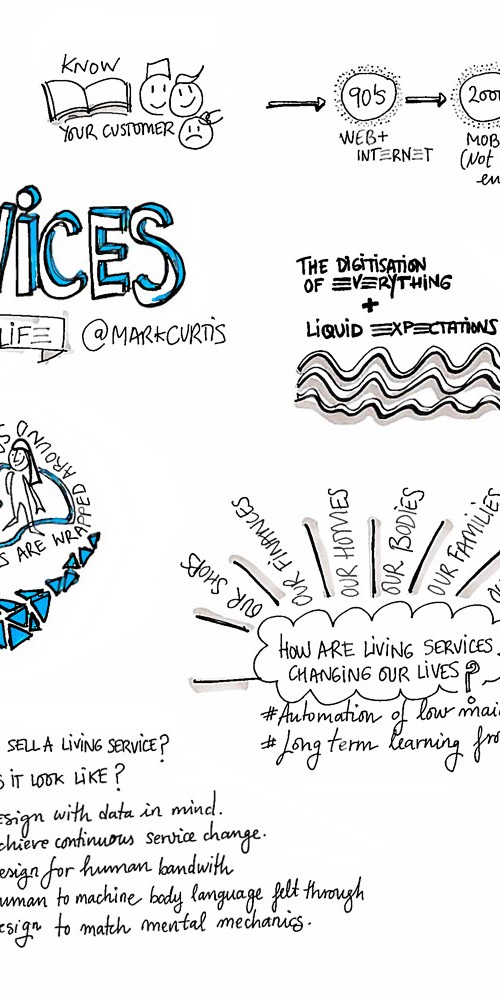 KNOW
YOUR CUSTOMER
90'S
WEB+
INTERNET
200
MOB
(Not
en
VICES
LIFE
@MARKCURTIS
THE DIGITISATION
OF EVERYTHING
+
LIQUID EXPECTATIONS
US
S ARE WRAPPED AROUND
OUR SHOPS
OUR FINANCES
OUR HOMES
OUR BODIES
OUR FAMILIES
HOW ARE LIVING SERVICES
CHANGING OUR LIVES?
#Automation of low mai
#Long term learning fro
SELL A LIVING SERVICE?
S IT LOOK LIKE?
esign with data in mind.
chieve continuous service change.
esign for human bandwith
uman to machine body language felt through
esign to match mental mechanics.